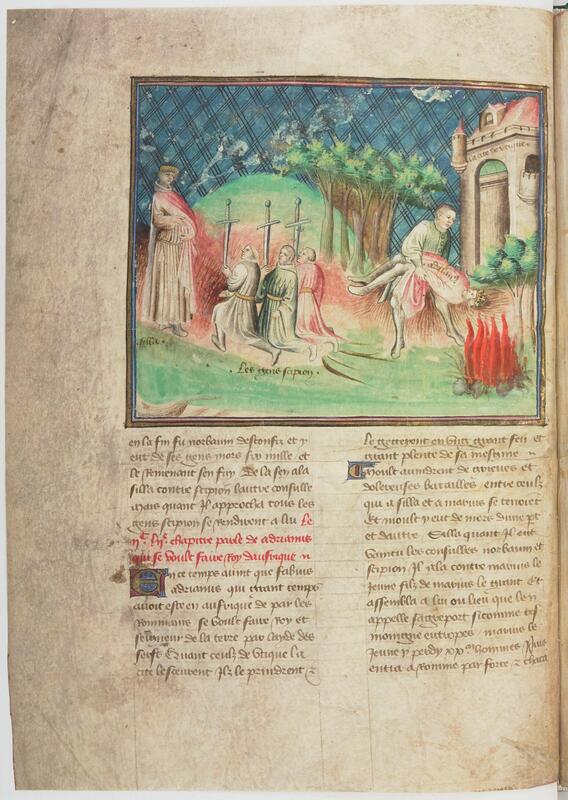 la cite de utique
adrian
silla
Les gens scipion
en la fin fu norbanin desconfis et y
eut de ses gens mors six mille et
le Remenant sen fuy De la sen ala
silla contre scipion lautre consulle
Mais quant Il approcha tous les
gens scipion se rendirent a luy Le
chapitre parle de adrianus
qui se voult faire Roy dausrique
En ce temps avint que fabius
adrianus qui grant temps
avoit este en ausrique de par les
Rommains se voult faire Roy et
seigneur de la terre par layde des
serfs Quant ceulz de utique la
cite le sceurent Ilz le prindrent et
Le getterent en ung grant feu et
grant plente de sa mesnie
Moult avindrent de grieves et
dolereuses batailles entre ceulz
qui a silla et a marius se tenoient
Et moult y eut de mors dune pt
et dautre Silla quant Il eut
vaincu les consulles norbanin et
scipion Il ala contre marius le
Jeune filz de marius le grant Et
assembla a luy ou lieu que len
appelle sacreport sicomme
marius le
Jeune y perdy hommes Puis
entra a Romme par force et chaca